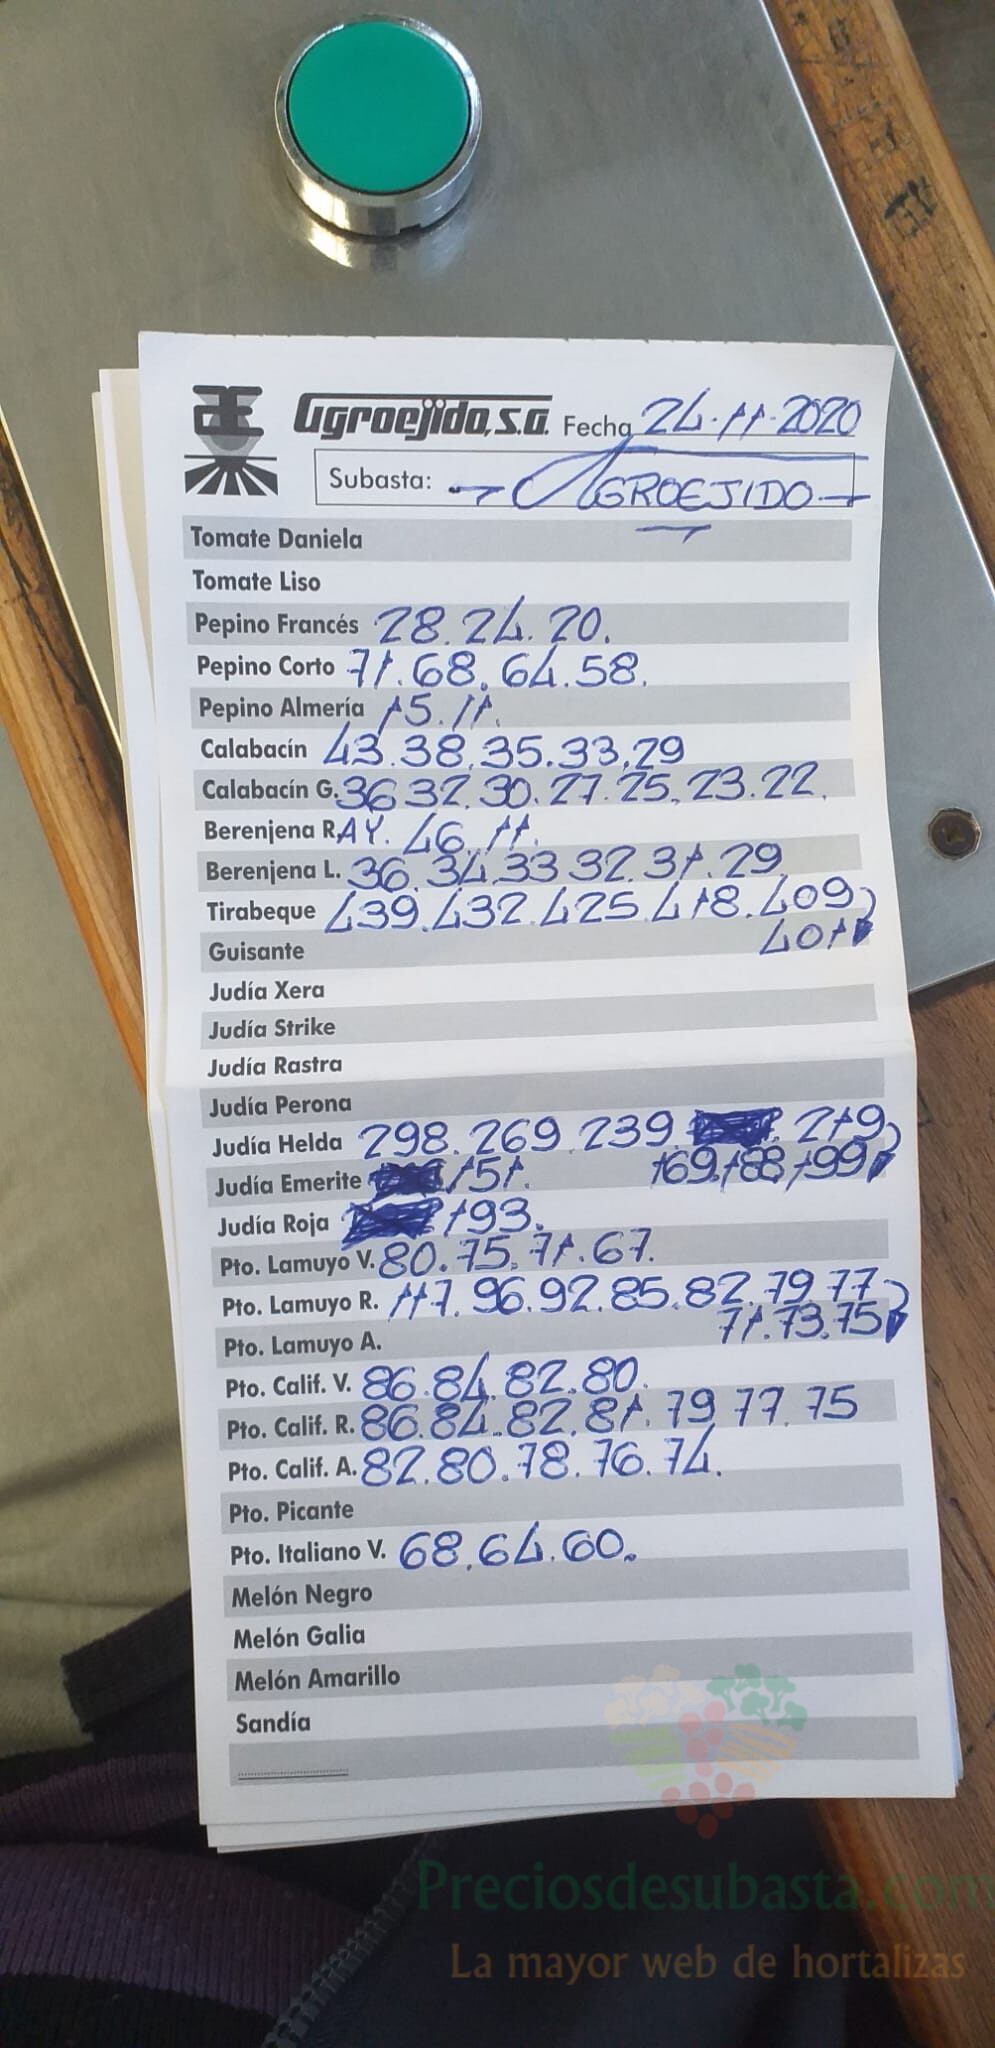 Agroejido, s.a. Fecha 24-11-2020
Subasta: AGROEJIDO
Tomate Daniela
Tomate Liso
Pepino Francés 28.24.20.
Pepino Corto 71.68.64.58.
Pepino Almería 15.11.
Calabacín 43.38.35.33.29
Calabacín G. 36 32.30.27.25.23.22.
Berenjena RAY. 46.11.
Berenjena L. 36.34.33 32.31.29
Tirabeque 439.432.425.418.409
401
Guisante
Judía Xera
Judía Strike
Judía Rastra
Judía Perona
Judía Helda 298.269.239. 219
169.188.199
Judía Emerite 151.
Judía Roja 193.
Pto. Lamuyo V. 80.75.71.67.
Pto. Lamuyo R. 117.96.92.85.82.79.77
71.73.75
Pto. Lamuyo A.
Pto. Calif. V. 86.84.82.80.
Pto. Calif. R. 86.84.82.81.79.77.75
Pto. Calif. A. 82.80.78.76.74.
Pto. Picante
Pto. Italiano V. 68.64.60.
Melón Negro
Melón Galia
Melón Amarillo
Sandía
Preciosdesubasta.com
La mayor web de hortalizas